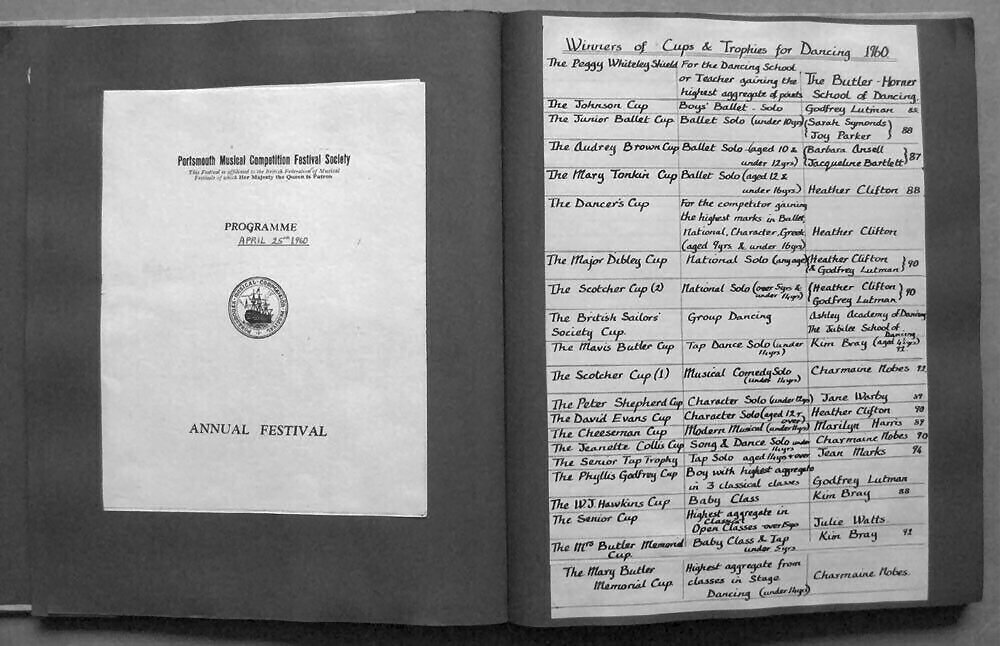 Portsmouth Musical Competition Festival Society
This Festival is affiliated to the British Federation of Musical
Festivals of which Her Majesty the Queen is Patron
PROGRAMME
APRIL 25TH 1960
ANNUAL FESTIVAL
Winners of Cups & Trophies for Dancing 1960
The Peggy Whiteley Shield For the Dancing School
or Teacher gaining the The Butler-Horner
highest aggregate of points School of Dancing.
The Johnson Cup Boys' Ballet - Solo Godfrey Lutman 85
The Junior Ballet Cup Ballet Solo (under 10yrs) {Sarah Symonds
Joy Parker} 88
The Audrey Brown Cup Ballet Solo (aged 10 & {Barbara Ansell
under 12yrs) Jacqueline Bartlett} 87
The Mary Tonkin Cup Ballet Solo (aged 12 &
under 16yrs) Heather Clifton 88
The Dancer's Cup For the competitor gaining
the highest marks in Ballet,
National, Character, Greek Heather Clifton
(aged 9yrs & under 16yrs)
The Major Dibley Cup National Solo (any age) {Heather Clifton
& Godfrey Lutman} 90
The Scotcher Cup (2) National Solo (over 5yrs & {Heather Clifton
under 14yrs) Godfrey Lutman} 90
The British Sailors' Group Dancing Ashley Academy of Dancing
Society Cup. The Jubilee School of Dancing
The Mavis Butler Cup Tap Dance Solo (under Kim Bray (aged 4½yrs)
14yrs) 92
The Scotcher Cup (1) Musical Comedy Solo Charmaine Nobes 92
(under 14yrs)
The Peter Shepherd Cup Character Solo (under 12yrs) Jane Warby 89
The David Evans Cup Character Solo (aged 12 & Heather Clifton 90
over)
The Cheeseman Cup Modern Musical (under 14yrs) Marilyn Harris 89
The Jeanette Collis Cup Song & Dance Solo under Charmaine Nobes 90
14yrs
The Senior Tap Trophy Tap Solo aged 14yrs + over Jean Marks 94
The Phyllis Godfrey Cup Boy with highest aggregate
in 3 classical classes Godfrey Lutman
The W.J. Hawkins Cup Baby Class Kim Bray 88
The Senior Cup Highest aggregate in
Classical
Open Classes over 15yrs Julie Watts.
The Mrs Butler Memorial Baby Class & Tap Kim Bray 92
Cup. under 5yrs
The Mary Butler Highest aggregate from
Memorial Cup. classes in Stage Charmaine Nobes.
Dancing (under 14yrs)